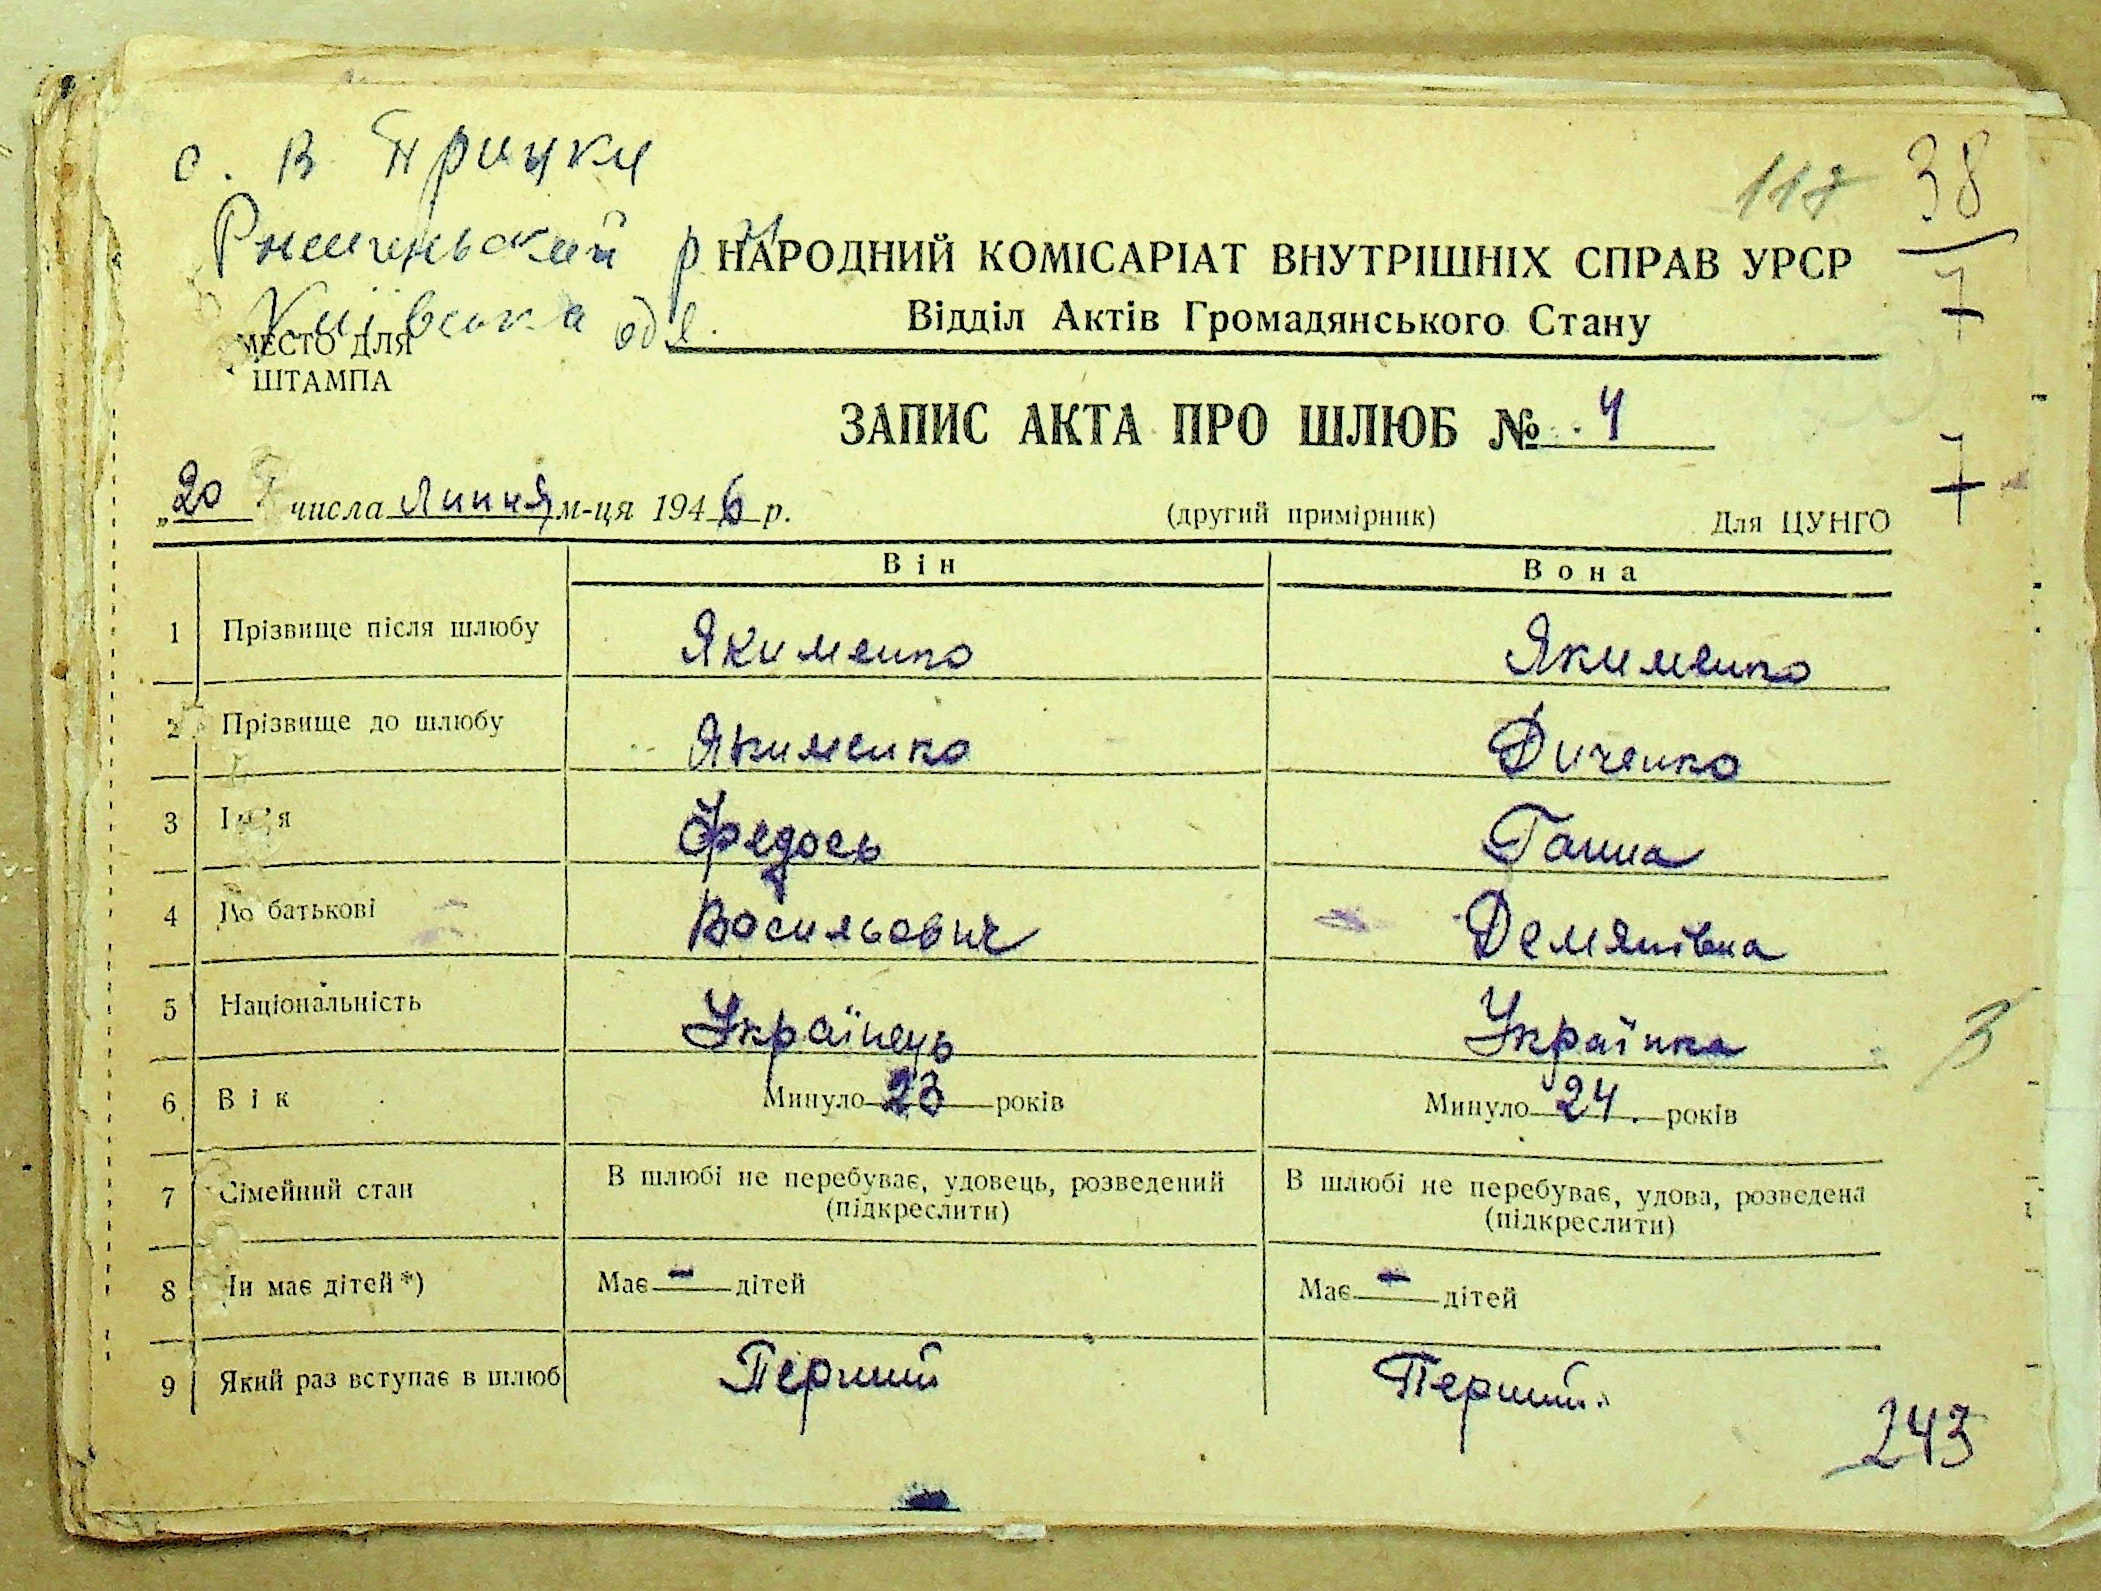 с. В Прицки
Ржищевський р-н
Київська обл.
118
38
7
7
НАРОДНИЙ КОМІСАРІАТ ВНУТРІШНІХ СПРАВ УРСР
Відділ Актів Громадянського Стану
МЕСТО ДЛЯ
ШТАМПА
ЗАПИС АКТА ПРО ШЛЮБ № 4
„20 числа Липня м-ця 1946 р. (другий примірник) Для ЦУНГО
Він Вона
1 Прізвище після шлюбу Якименко Якименко
2 Прізвище до шлюбу Якименко Диченко
3 Ім'я Федось Ганна
4 По батькові Васильович Демянівна
5 Національність Українець Українка
3
6 Вік Минуло 23 років Минуло 24. років
7 Сімейний стан В шлюбі не перебуває, удовець, розведений (підкреслити) В шлюбі не перебуває, удова, розведена (підкреслити)
8 Чи має дітей*) Має - дітей Має - дітей
9 Який раз вступає в шлюб Перший Перший
243